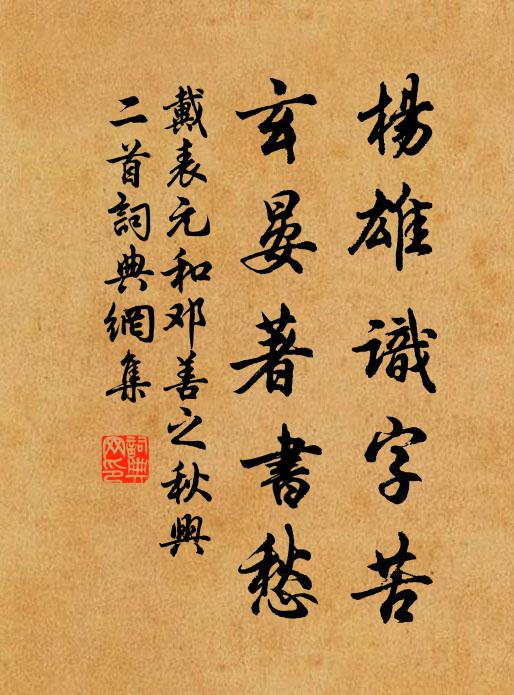 楊雄識字苦
玄晏著書愁
戴表元和邓善之秋興
二首詞典網集
詞典网印